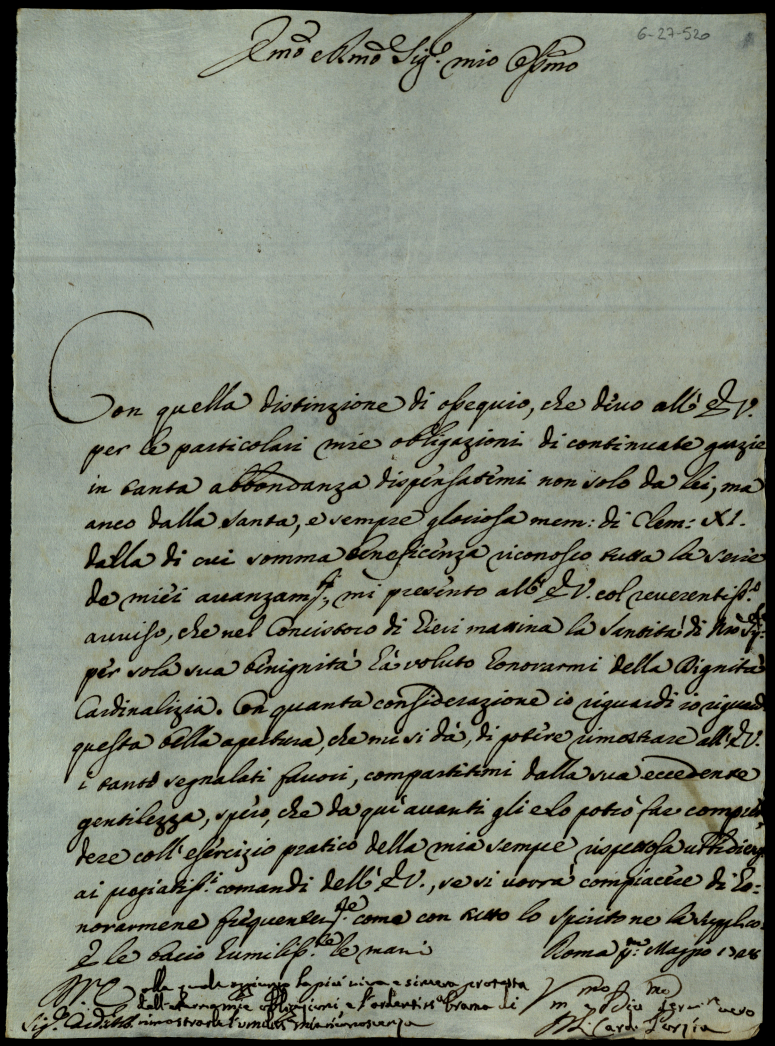 6-27-520
Emō e Rmō Sig.r mio Ossmo
Con quella distinzione di ossequio, che devo all'E.V.
per le particolari mie obligazioni di continuate grazie
in tanta abbondanza dispensatemi non solo da lei, ma
anco dalla santa, e sempre gloriosa mem: di Clem: XI.
dalla di cui somma beneficenza riconosco tutta la serie
de miei avanzam.ti, mi presento all'E.V. col reverentiss.o
avviso, che nel Concistoro di Hieri mattina la Santità di Nrō Sig.re
per sola sua benignità hà voluto honorarmi della Dignità
Cardinalizia. Con quanta considerazione io riguardi io riguardi
questa bella apertura, che mi si dà, di potere rimostrare all'E.V.
i tanti segnalati favori, compartitimi dalla sua eccedente
gentilezza, spero, che da qui avanti gli e lo potrò far compren
dere coll'esercizio pratico della mia sempre rispettosa ubbidienza
ai pregiatiss.i comandi dell'E.V., se si vorrà compiacere di ho-
norarmene frequentem.te come con tutto lo spirito ne la supplico.
E le bacio humiliss.te le mani Roma p.mo Maggio 1728
alla quale aggiungo la più viva e sincera protesta
dell'eterne mie obligazioni e l'ardentiss.a brama di
Sig.r Card. rimostrarle
V.mo Ser.re vero
Card. Porzia